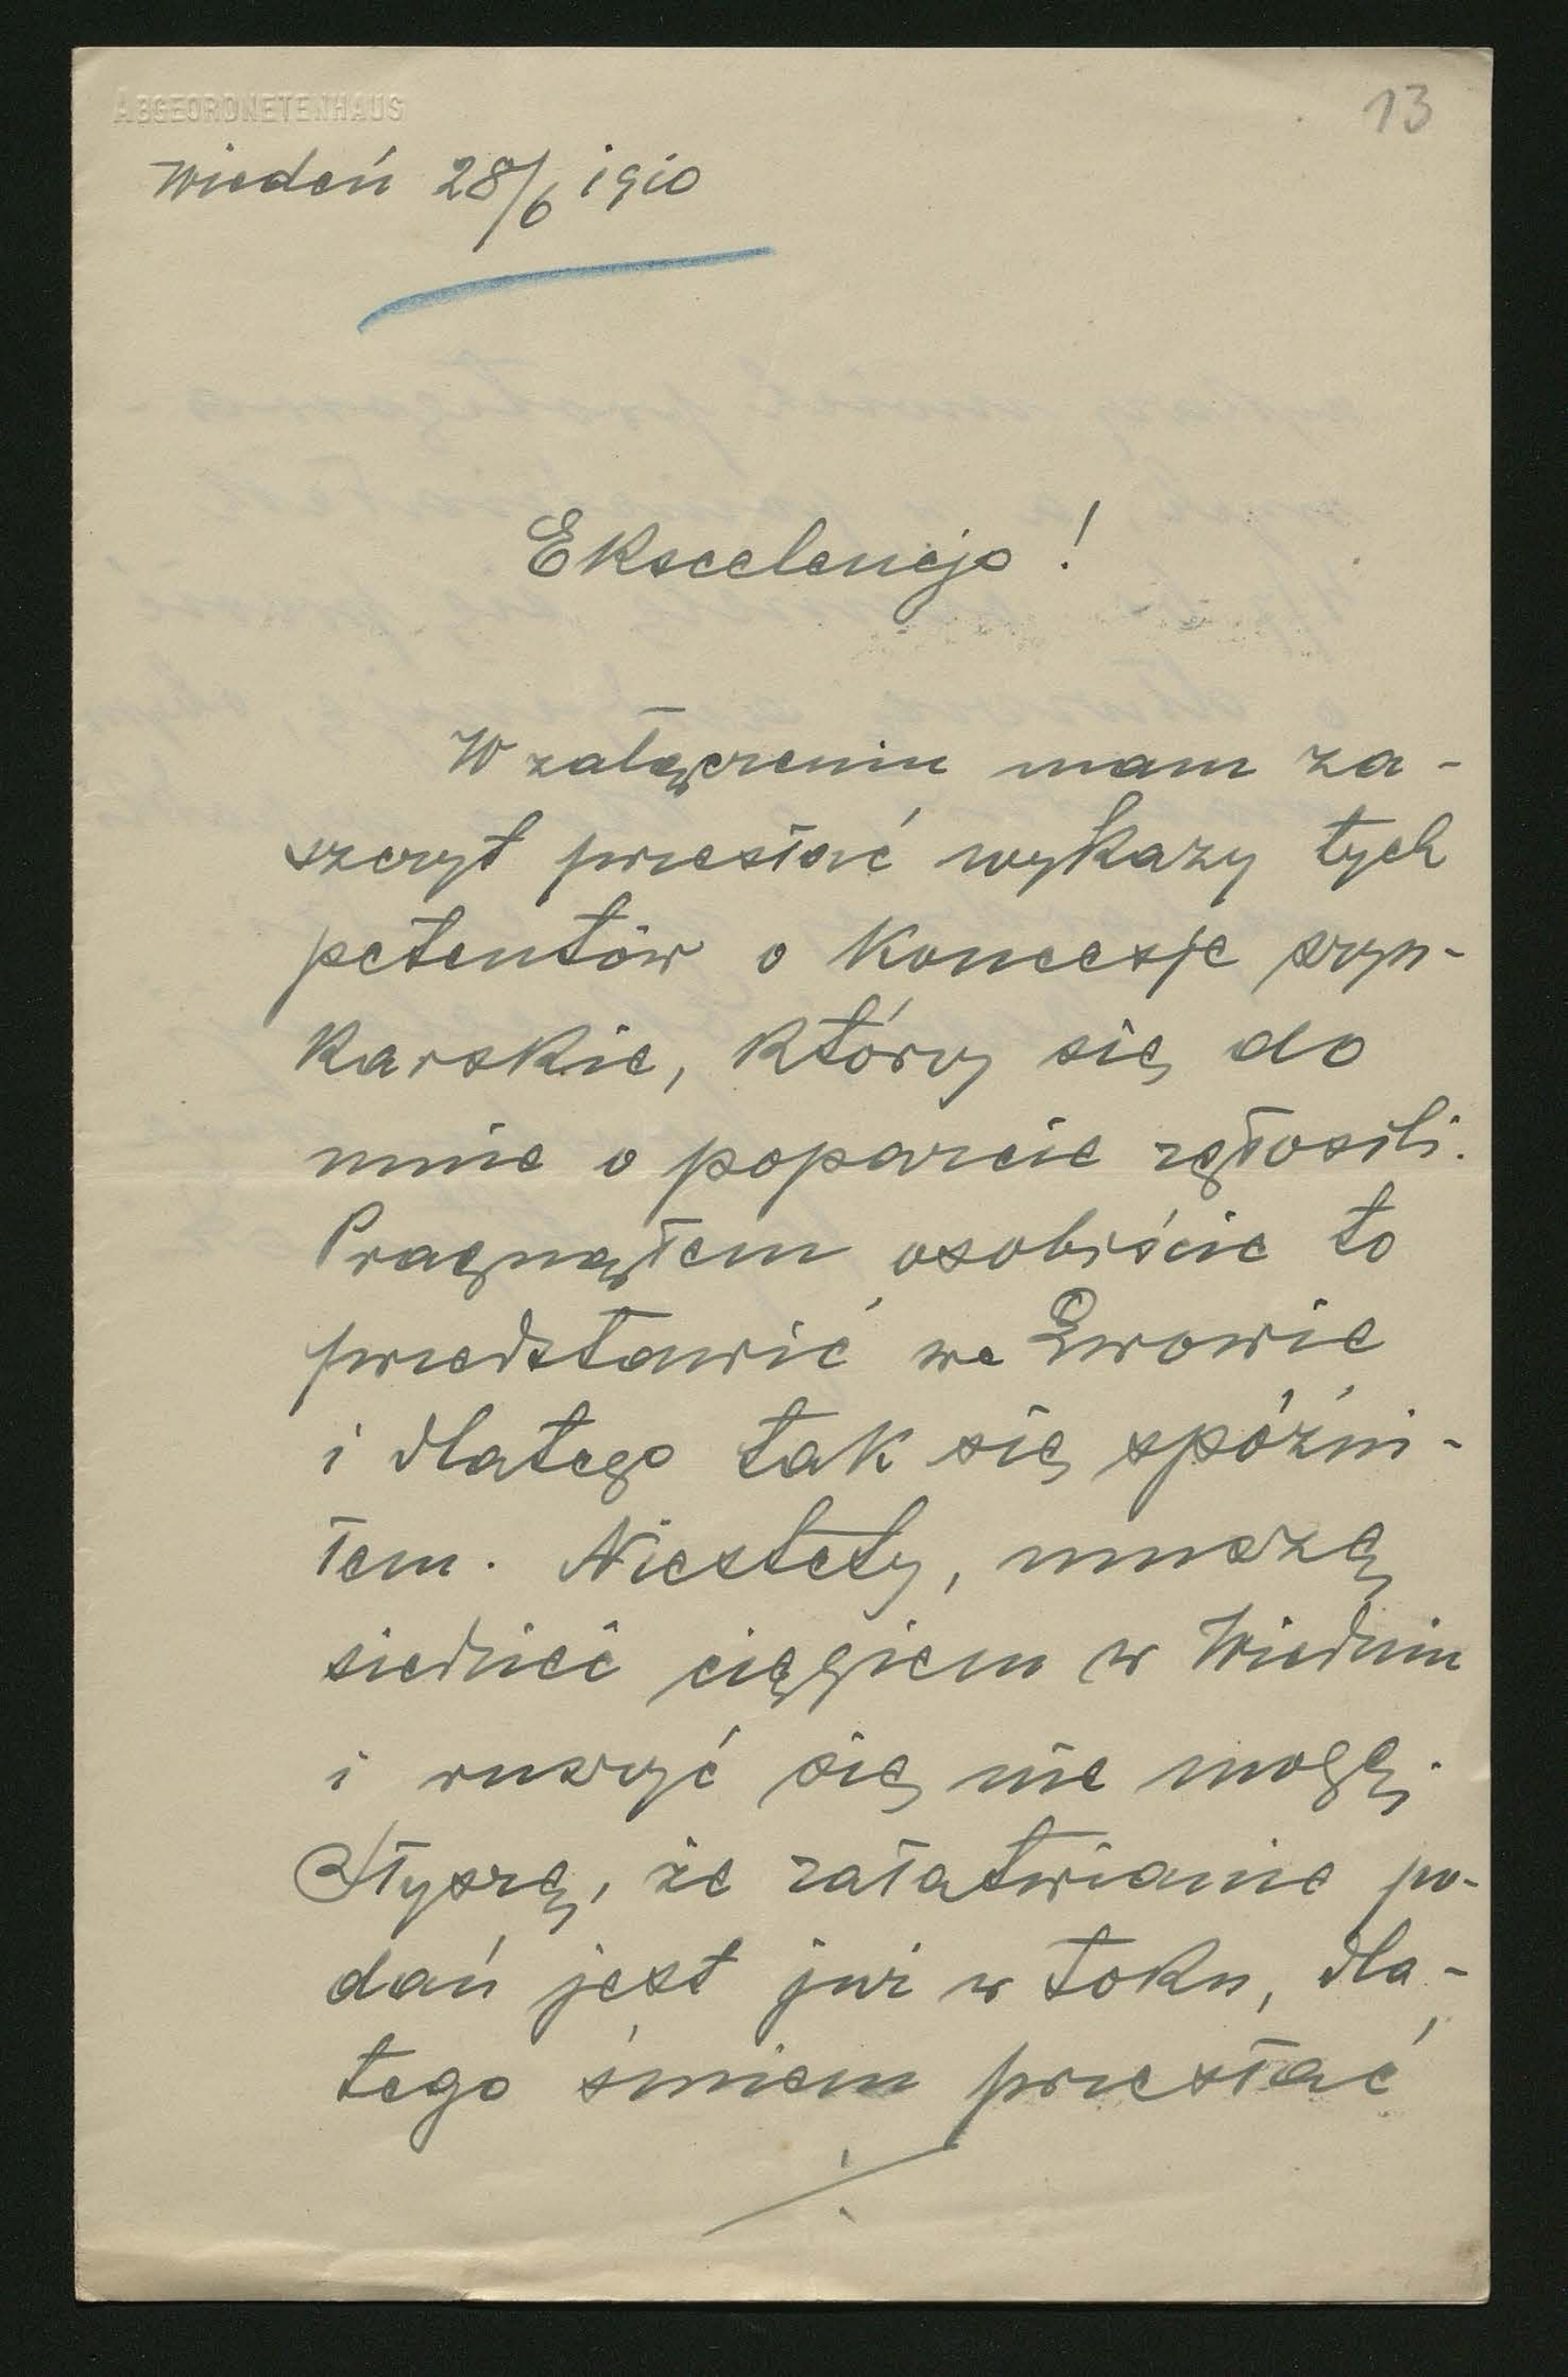 ABGEORDNETENHAUS
13
Wiedeń 28/6 1910
Ekscelencjo!
W załączeniu mam za-
szczyt przesłać wykazy tych
petentów o koncesje szyn-
karskie, którzy się do
mnie o poparcie zgłosili.
Pragnąłem osobiście to
przedstawić we Lwowie
i dlatego tak się spóźni-
łem. Niestety, muszę
siedzieć ciągiem w Wiedniu
i ruszyć się nie mogę.
Słyszę, że załatwianie po-
dań jest już w toku, dla-
tego śmiem przesłać
./.